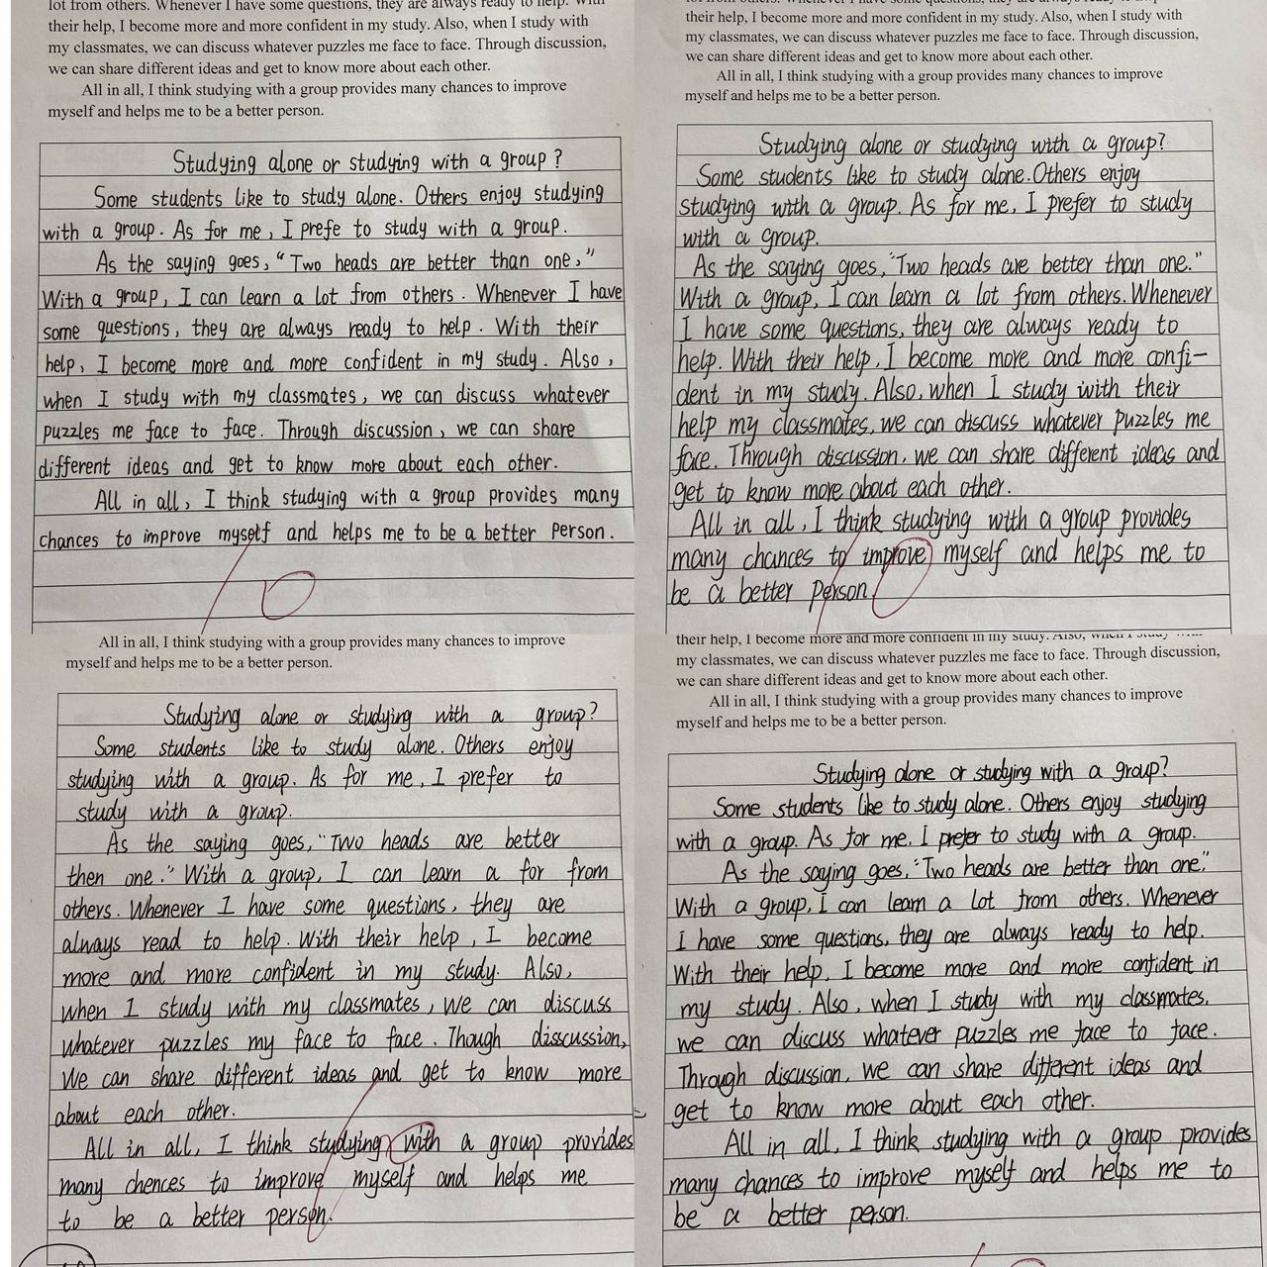 lot from others. Whenever I have some questions, they are always ready to help. With
their help, I become more and more confident in my study. Also, when I study with
my classmates, we can discuss whatever puzzles me face to face. Through discussion,
we can share different ideas and get to know more about each other.
All in all, I think studying with a group provides many chances to improve
myself and helps me to be a better person.
Studying alone or studying with a group?
Some students like to study alone. Others enjoy studying
with a group. As for me, I prefe to study with a group.
As the saying goes, "Two heads are better than one,"
With a group, I can learn a lot from others. Whenever I have
some questions, they are always ready to help. With their
help, I become more and more confident in my study. Also,
when I study with my classmates, we can discuss whatever
puzzles me face to face. Through discussion, we can share
different ideas and get to know more about each other.
All in all, I think studying with a group provides many
chances to improve myself and helps me to be a better person.
their help, I become more and more confident in my study. Also, when I study with
my classmates, we can discuss whatever puzzles me face to face. Through discussion,
we can share different ideas and get to know more about each other.
All in all, I think studying with a group provides many chances to improve
myself and helps me to be a better person.
Studying alone or studying with a group?
Some students like to study alone. Others enjoy
studying with a group. As for me, I prefer to study
with a group.
As the saying goes, "Two heads are better than one."
With a group, I can learn a lot from others. Whenever
I have some questions, they are always ready to
help. With their help, I become more and more confi-
dent in my study. Also, when I study with their
help my classmates, we can discuss whatever puzzles me
face. Through discussion, we can share different ideas and
get to know more about each other.
All in all, I think studying with a group provides
many chances to improve myself and helps me to
be a better person.
All in all, I think studying with a group provides many chances to improve
myself and helps me to be a better person.
Studying alone or studying with a group?
Some students like to study alone. Others enjoy
studying with a group. As for me, I prefer to
study with a group.
As the saying goes, "Two heads are better
then one." With a group, I can learn a for from
others. Whenever I have some questions, they are
always read to help. With their help, I become
more and more confident in my study. Also,
when I study with my classmates, we can discuss
whatever puzzles my face to face. Though disscussion,
We can share different ideas and get to know more
about each other.
All in all, I think studying with a group provides
many chences to improve myself and helps me
to be a better person.
their help, I become more and more confident in my study. Also, when I study
my classmates, we can discuss whatever puzzles me face to face. Through discussion,
we can share different ideas and get to know more about each other.
All in all, I think studying with a group provides many chances to improve
myself and helps me to be a better person.
Studying alone or studying with a group?
Some students like to study alone. Others enjoy studying
with a group. As for me, I prefer to study with a group.
As the saying goes, "Two heads are better than one."
With a group, I can learn a lot from others. Whenever
I have some questions, they are always ready to help.
With their help, I become more and more confident in
my study. Also, when I study with my classmates,
we can discuss whatever puzzles me face to face.
Through discussion, we can share different ideas and
get to know more about each other.
All in all, I think studying with a group provides
many chances to improve myself and helps me to
be a better person.